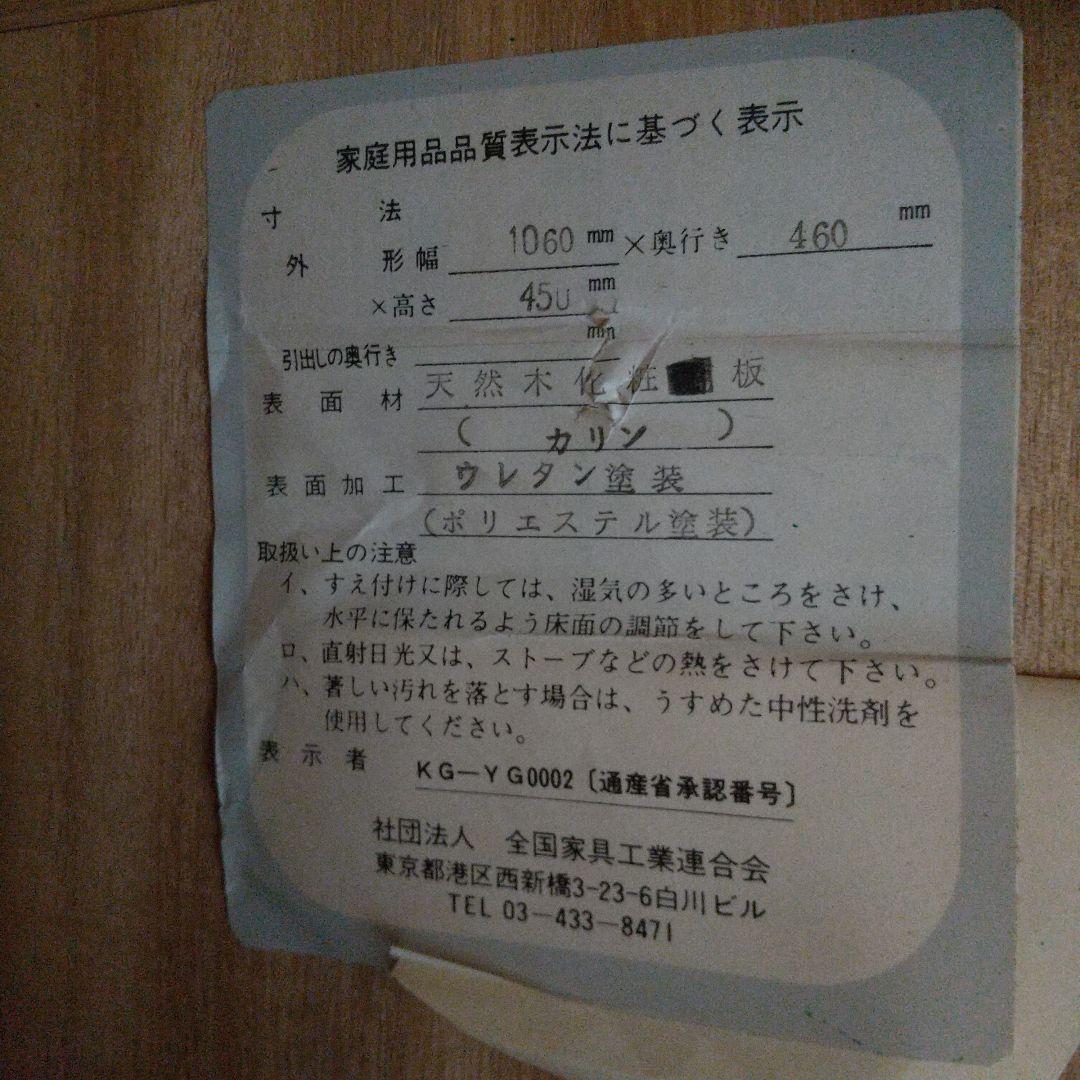 家庭用品品質表示法に基づく表示
寸法
外形幅 1060 mm ×奥行き 460 mm
×高さ 450 mm
引出しの奥行き mm
表面材 天然木化粧 板
(カリン)
表面加工 ウレタン塗装
(ポリエステル塗装)
取扱い上の注意
イ、すえ付けに際しては、湿気の多いところをさけ、
水平に保たれるよう床面の調節をして下さい。
ロ、直射日光又は、ストーブなどの熱をさけて下さい。
ハ、著しい汚れを落とす場合は、うすめた中性洗剤を
使用してください。
表示者 KG-YG0002〔通産省承認番号〕
社団法人 全国家具工業連合会
東京都港区西新橋3-23-6白川ビル
TEL 03-433-8471